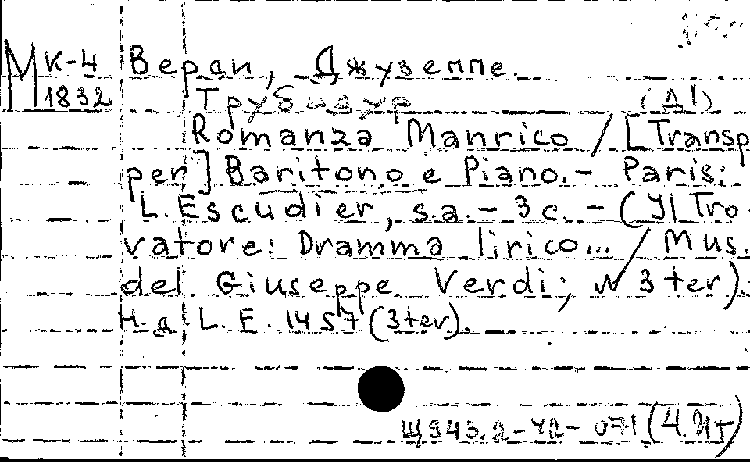 М К-4 Верди, Джузеппе.
1832 Трубадур (Д1)
Romanza Manrico / [Transp
per] Baritono e Piano. - Paris:
L. Escudier, s.a. - 3 с. - (Il Tro-
vatore: Dramma lirico... / Mus.
del Giuseppe Verdi; N 3 ter).
Н.д. L. E. 1457 (3 ter).
Щ943.2-42-071 (4.Ит)